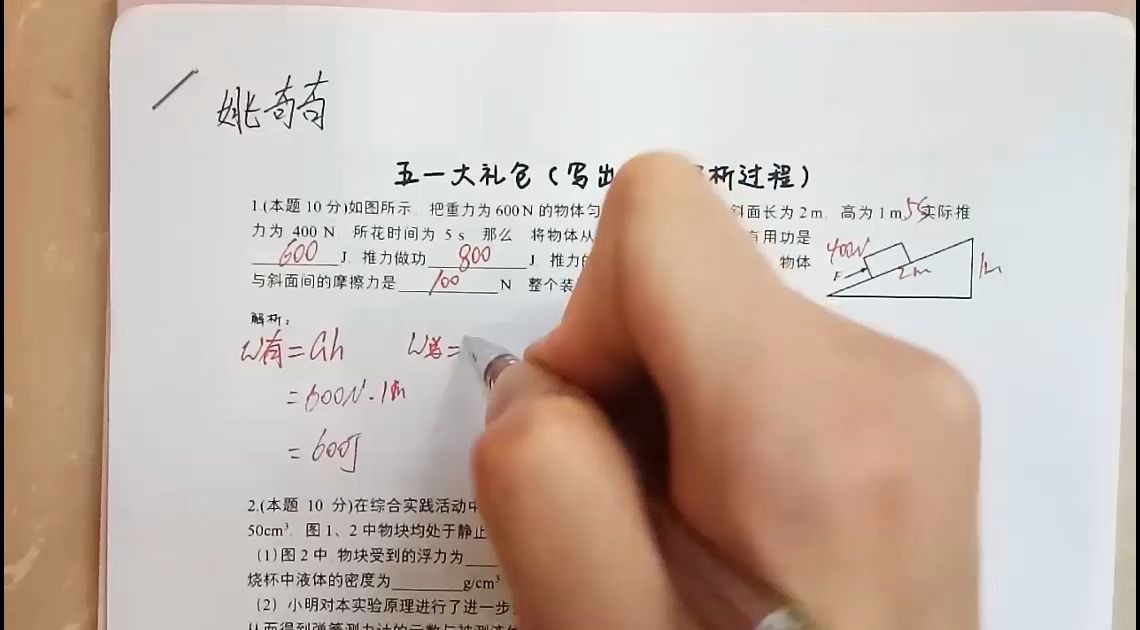 姚奇奇
五一大礼包（写出 析过程）
1.(本题 10 分)如图所示 把重力为 600N 的物体匀 斜面长为 2m 高为 1m 5s 实际推
力为 400 N 所花时间为 5 s 那么 将物体从 有用功是
600 J 推力做功 800 J 推力的 物体
与斜面间的摩擦力是 100 N 整个装
400N
F
2m
1m
解析：
W有=Gh W总=
=600N·1m
=600J
2.(本题 10 分)在综合实践活动中
50cm³ 图 1、2 中物块均处于静止
(1)图 2 中 物块受到的浮力为
烧杯中液体的密度为 g/cm³
(2) 小明对本实验原理进行了进一步
从而得到弹簧测力计的示数与被测液体